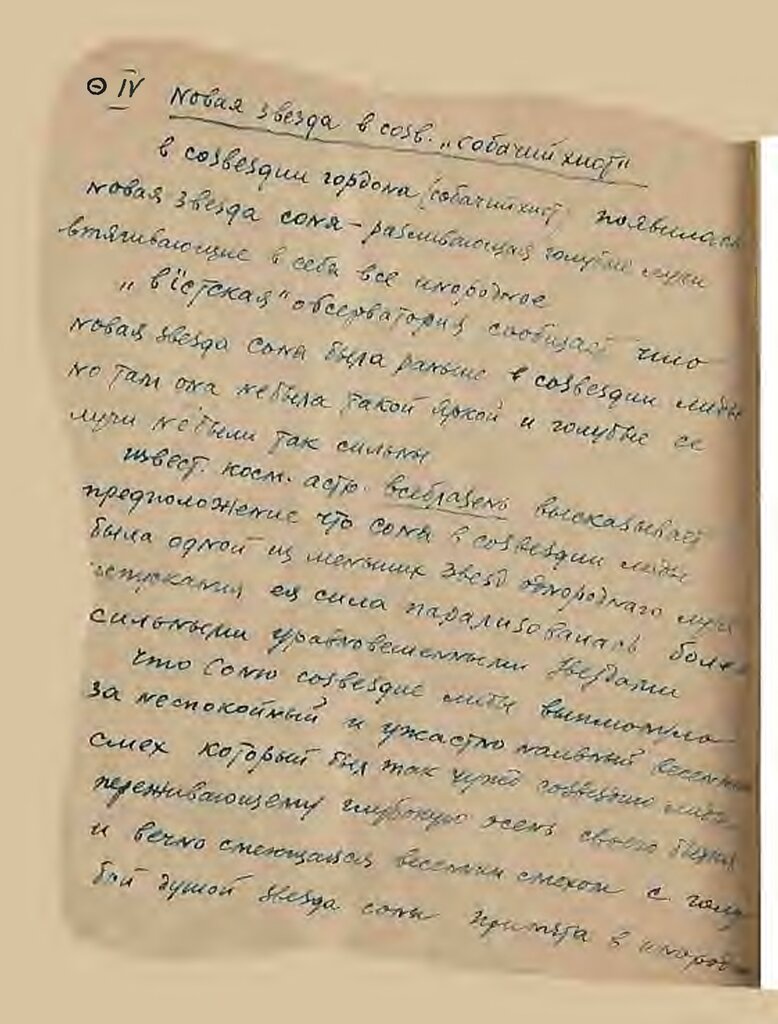 Θ IV Новая звезда в созв. „собачий хист"
в созвездии гордона (собачий хист) появилась
новая звезда соня - разливающая голубые лучи
втягивающие в себя все инородное
„вiстская" обсерватория сообщает что
новая звезда соня была раньше в созвездии лиды
но там она небыла такой яркой и голубые ее
лучи небыли так сильны
извест. косм. астр. высказывает
предположение что соня в созвездии лиды
была одной из меньших звезд однороднаго луче
испускания ея сила парализовалась более
сильными уравновешенными звездами
что Соню созвездие лиды
за неспокойный и ужастно наивный веселый
смех который был так чужд созвездию лиды
переживающему глубокую осень своего бытия
и вечно смеющаяся веселым смехом с голу
бой душой звезда соня принята в инород